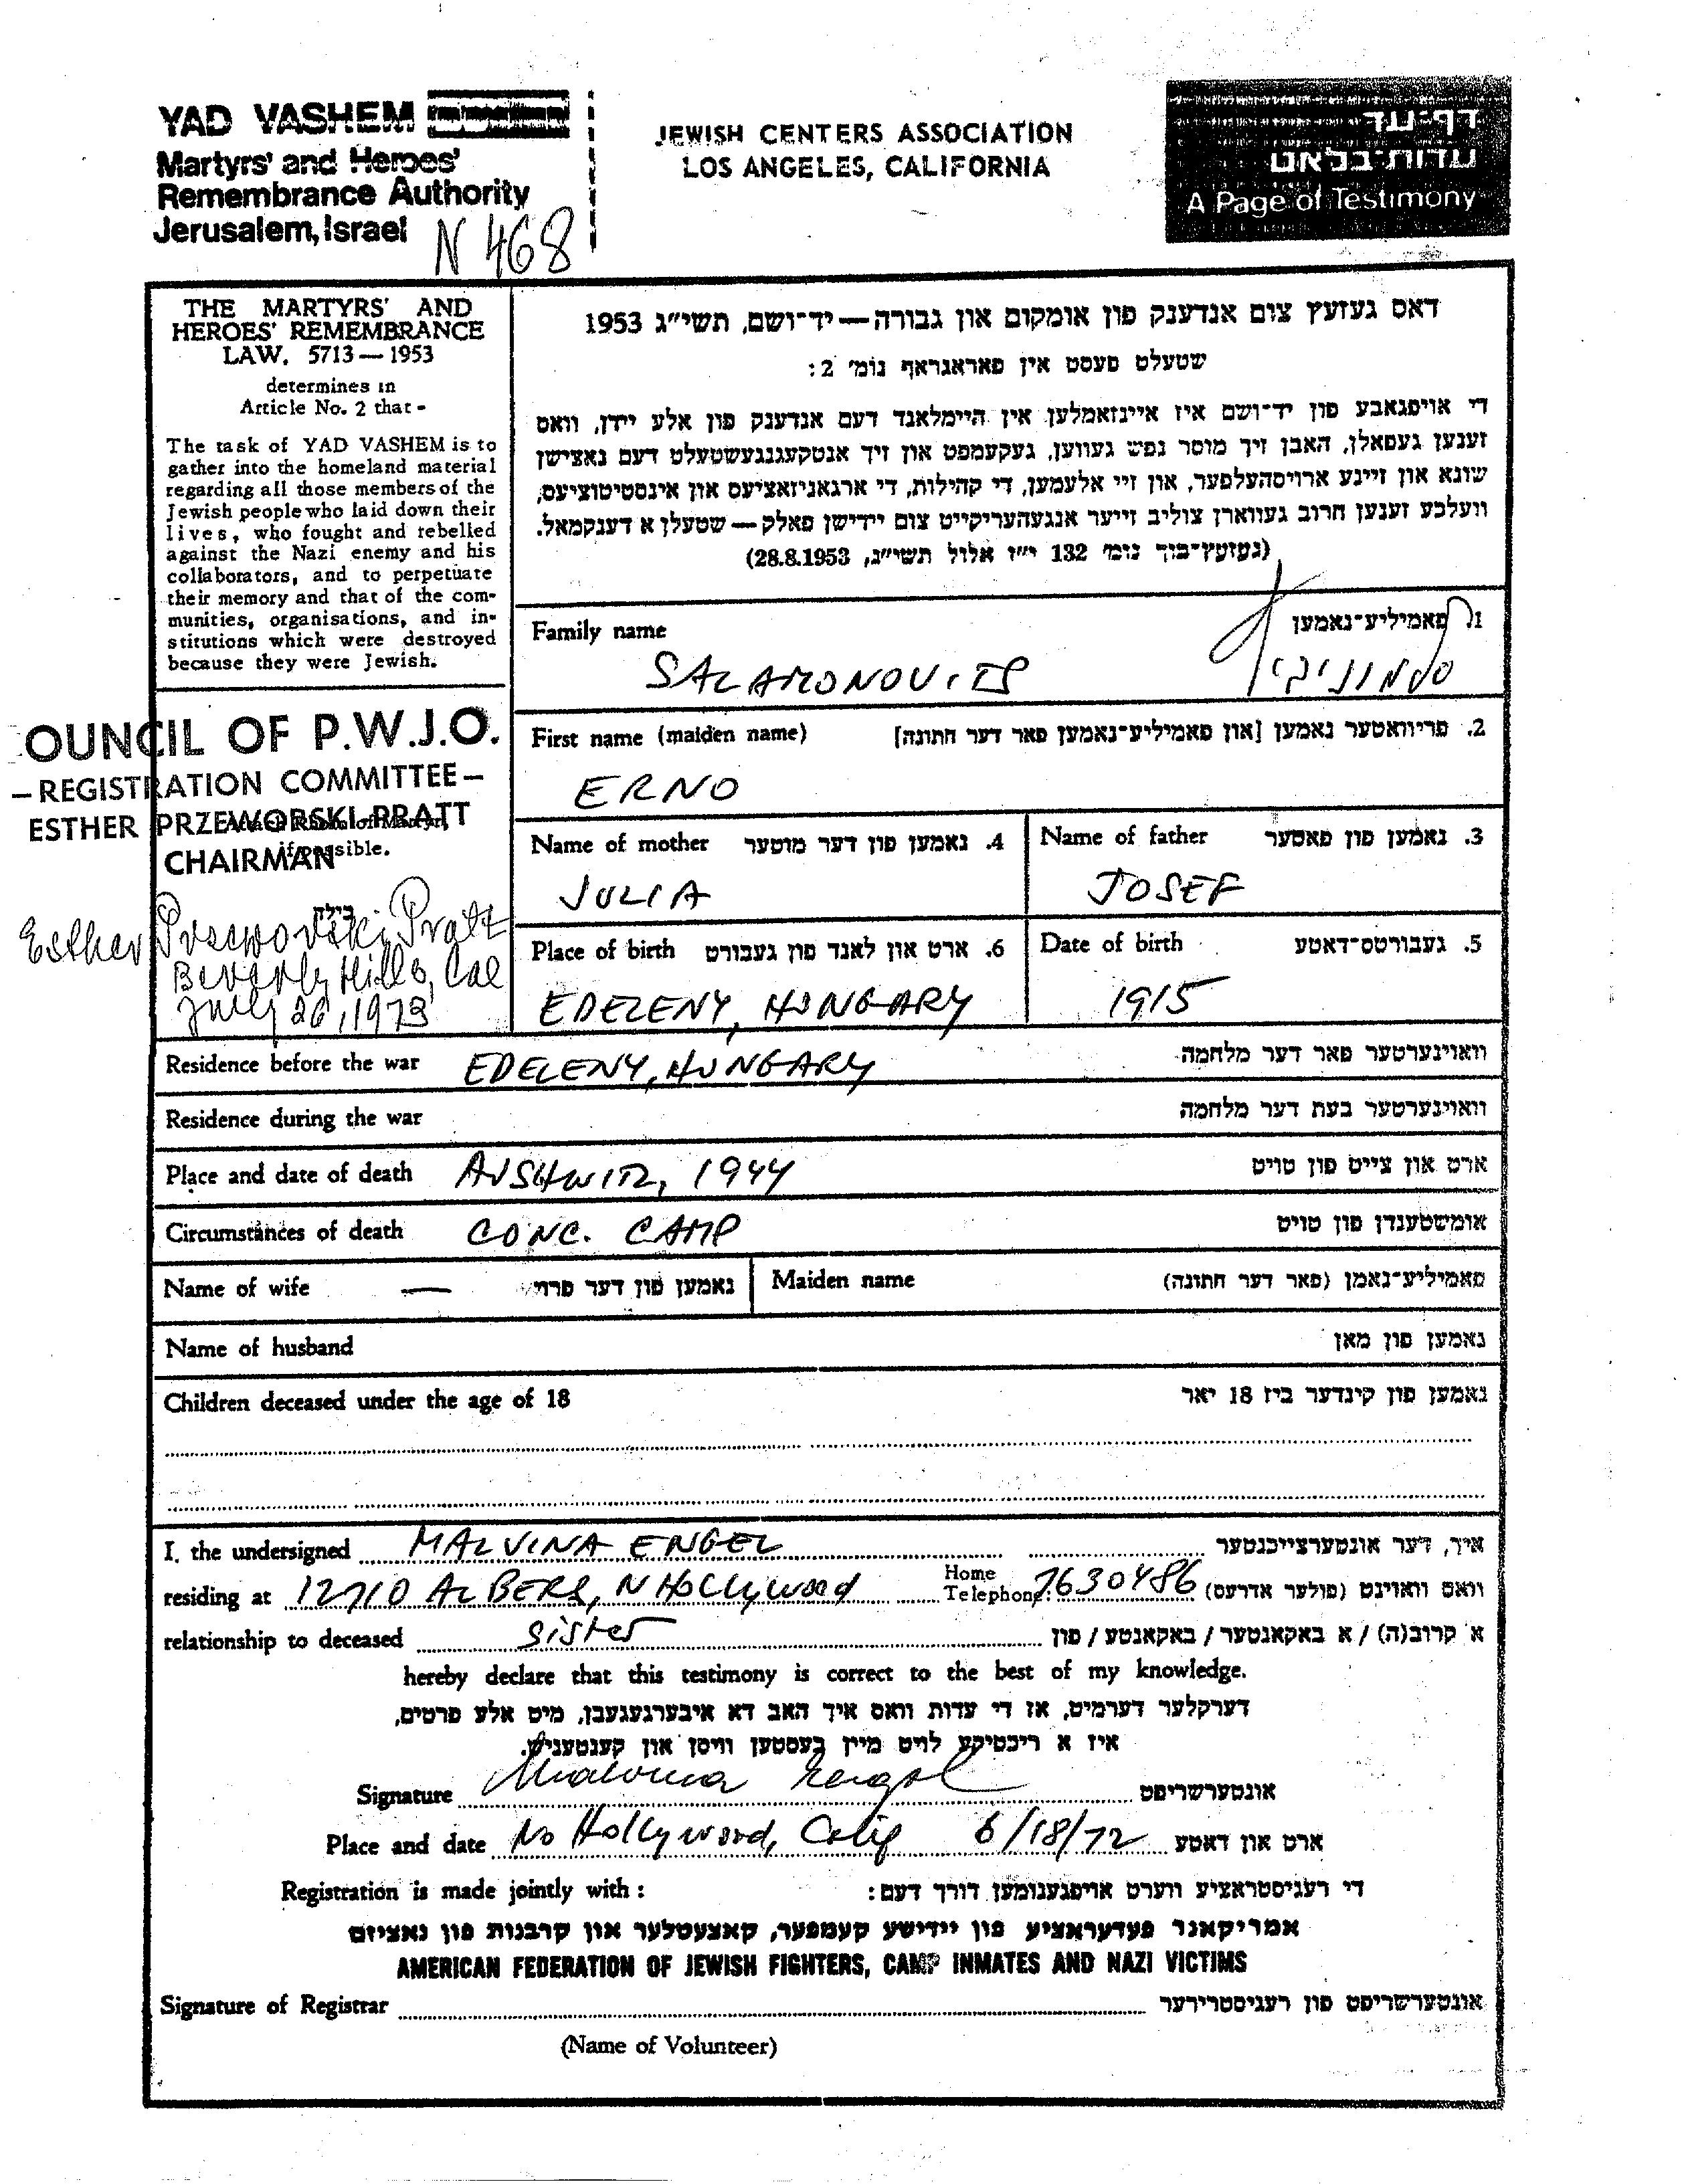 YAD VASHEM
Martyrs' and Heroes'
Remembrance Authority
Jerusalem, Israel
N 468
JEWISH CENTERS ASSOCIATION
LOS ANGELES, CALIFORNIA
דף-עד
עדות-בלאט
A Page of Testimony
THE MARTYRS' AND
HEROES' REMEMBRANCE
LAW, 5713 — 1953
determines in
Article No. 2 that -
The task of YAD VASHEM is to
gather into the homeland material
regarding all those members of the
Jewish people who laid down their
lives, who fought and rebelled
against the Nazi enemy and his
collaborators, and to perpetuate
their memory and that of the com-
munities, organisations, and in-
stitutions which were destroyed
because they were Jewish.
דאס געזעץ צום אנדענק פון אומקום און גבורה — יד-ושם, תשי"ג 1953
שטעלט פעסט אין פאראגראף נומ' 2:
די אויפגאבע פון יד-ושם איז איינזאמלען אין היימלאנד דעם אנדענק פון אלע יידן, וואס
זענען געפאלן, האבן זיך מוסר נפש געווען, געקעמפט און זיך אנטקעגנגעשטעלט דעם נאצישן
שונא און זיינע ארויסהעלפער, און זיי אלעמען, די קהילות, די ארגאניזאציעס און אינסטיטוציעס,
וועלכע זענען חרוב געווארן צוליב זייער אנגעהעריקייט צום יידישן פאלק — שטעלן א דענקמאל.
(געזעץ-בוך נומ' 132 י"ז אלול תשי"ג, 28.8.1953)
OUNCIL OF P.W.J.O.
— REGISTRATION COMMITTEE —
ESTHER PRZEWORSKI-PRATT
CHAIRMAN
if possible.
Esther Przeworski Pratt
Beverly Hills, Cal
July 26, 1973
Family name 1. פאמיליע-נאמען
SALAMONOVITS
First name (maiden name) 2. פריוואטער נאמען [און פאמיליע-נאמען פאר דער חתונה]
ERNO
Name of mother 4. נאמען פון דער מוטער Name of father 3. נאמען פון פאטער
JULIA JOSEF
Place of birth 6. ארט און לאנד פון געבורט Date of birth 5. געבורטס-דאטע
EDELENY, HUNGARY 1915
Residence before the war EDELENY, HUNGARY וואוינערטער פאר דער מלחמה
Residence during the war וואוינערטער בעת דער מלחמה
Place and date of death AUSHWITZ, 1944 ארט און צייט פון טויט
Circumstances of death CONC. CAMP אומשטענדן פון טויט
Name of wife — נאמען פון דער פרוי Maiden name פאמיליע-נאמן (פאר דער חתונה)
Name of husband נאמען פון מאן
Children deceased under the age of 18 נאמען פון קינדער ביז 18 יאר
I, the undersigned MALVINA ENGEL איך, דער אונטערצייכנטער
residing at 12710 ALBERS, N Hollywood Home Telephone 7630486 וואס וואוינט (פולער אדרעס)
relationship to deceased sister א קרוב(ה) / א באקאנטער / באקאנטע / פון
hereby declare that this testimony is correct to the best of my knowledge.
דערקלער דערמיט, אז די עדות וואס איך האב דא איבערגעגעבן, מיט אלע פרטים,
איז א ריכטיקע לויט מיין בעסטען וויסן און קענטעניש.
Signature Malvina Engel אונטערשריפט
Place and date No Hollywood, Calif 6/18/72 ארט און דאטע
Registration is made jointly with : די רעגיסטראציע ווערט אויפגענומען דורך דעם:
אמריקאנר פעדעראציע פון יידישע קעמפער, קאצעטלער און קרבנות פון נאציזם
AMERICAN FEDERATION OF JEWISH FIGHTERS, CAMP INMATES AND NAZI VICTIMS
Signature of Registrar אונטערשריפט פון רעגיסטרירער
(Name of Volunteer)